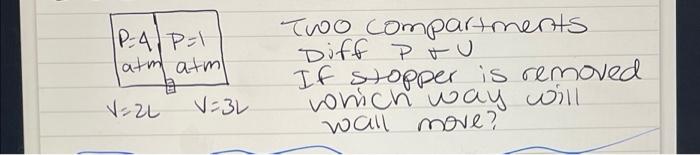 P=4 P=1
atm atm
V=2L V=3L
Two compartments
Diff P + V
If stopper is removed
which way will
wall move?